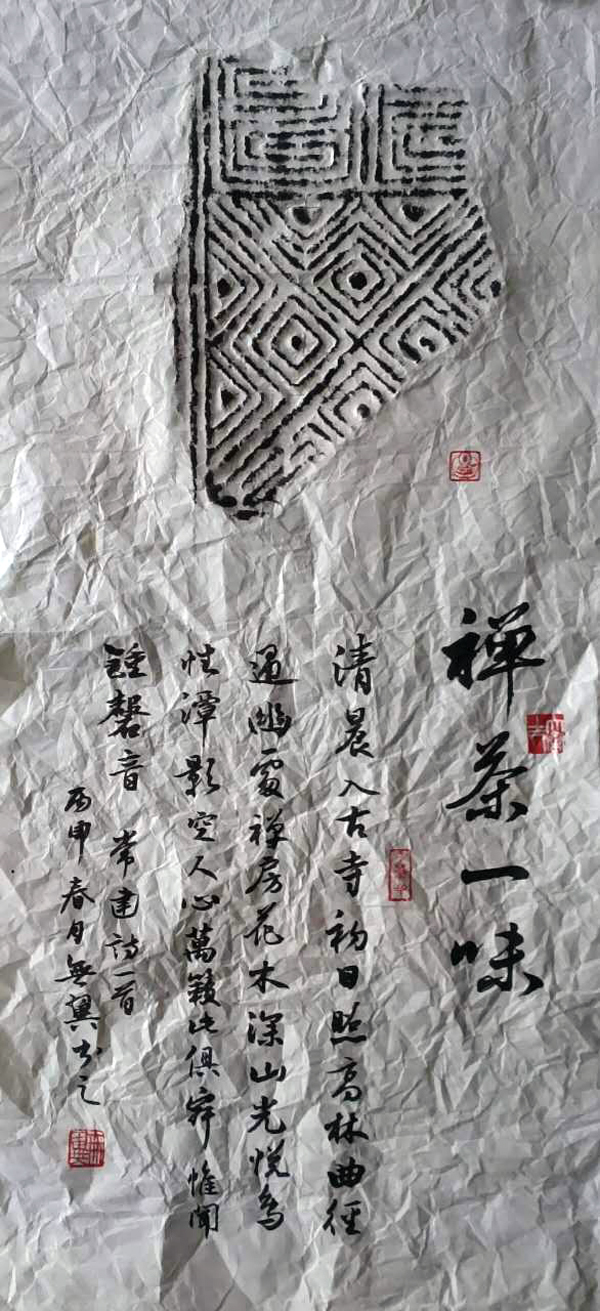 禅茶一味
清晨入古寺初日照高林曲徑
通幽處禅房花木深山光悅鳥
性潭影空人心萬籟此俱寂惟聞
鍾磬音 常建詩一首
丙申春月無翼书之